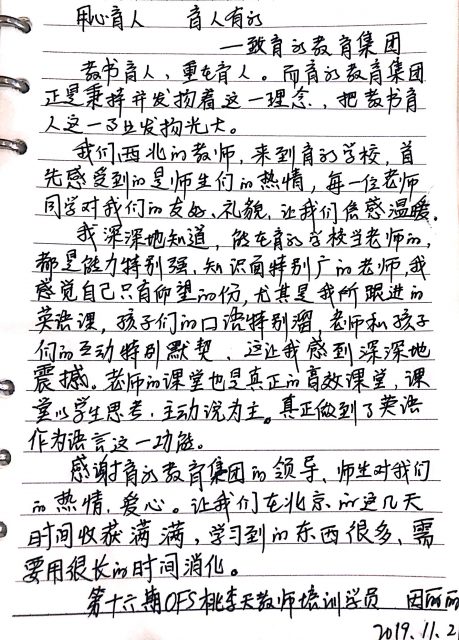 用心育人 育人有的
—致育的教育集团
教书育人,重在育人。而育的教育集团
正是秉持并发扬着这一理念,把教书育
人这一事业发扬光大。
我们西北的教师,来到育的学校,首
先感受到的是师生们的热情,每一位老师
同学对我们的友好、礼貌,让我们倍感温暖。
我深深地知道,能在育的学校当老师的,
都是能力特别强,知识面特别广的老师,我
感觉自己只有仰望的份,尤其是我所跟进的
英语课,孩子们的口语特别溜,老师和孩子
们的互动特别默契,这让我感到深深地
震撼。老师的课堂也是真正的高效课堂,课
堂以学生思考,主动说为主。真正做到了英语
作为语言这一功能。
感谢育的教育集团的领导、师生对我们
的热情、爱心。让我们在北京的这几天
时间收获满满,学习到的东西很多,需
要用很长的时间消化。
第十六期OFS桃李天教师培训学员 田丽丽
2019.11.2